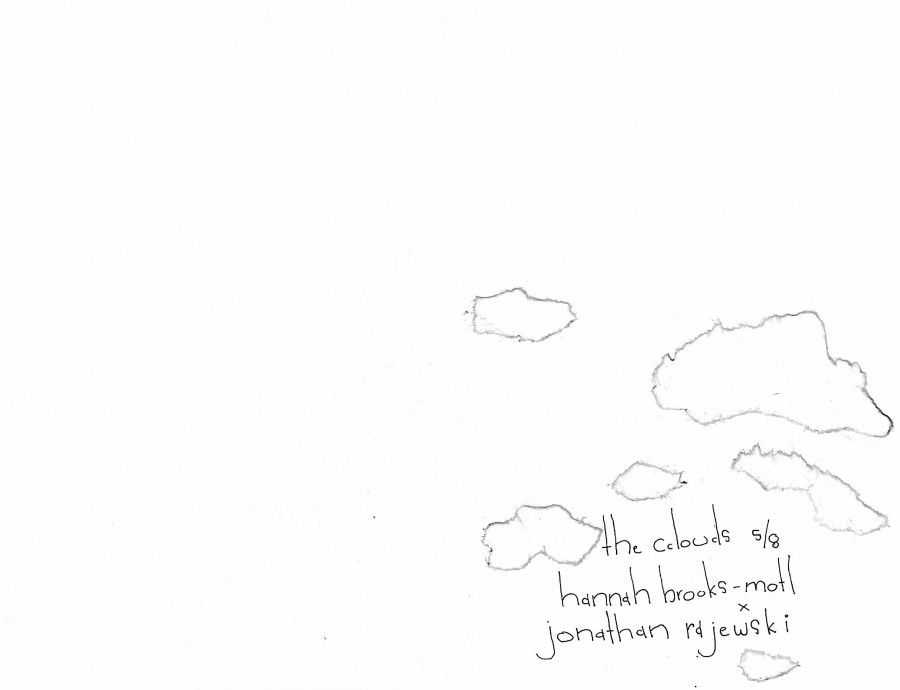 the cdlouds 5/8
hannah brooks-motl
x
jonathan rajewski